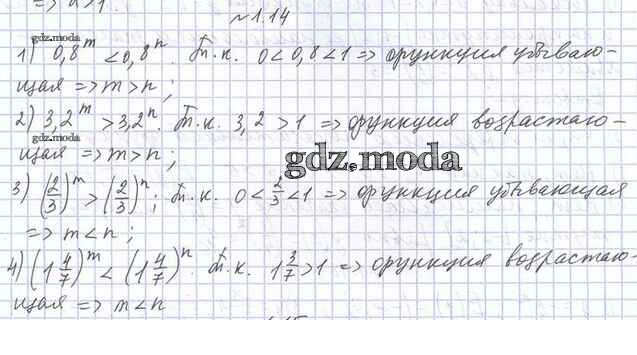 => a>1.
№1.14
gdz.moda
1) 0,8^m < 0,8^n. Т.к. 0<0,8<1 => функция убываю-
щая => m>n;
2) 3,2^m > 3,2^n. Т.к. 3,2>1 => функция возрастаю-
gdz.moda
щая => m>n;
gdz.moda
3) (2/3)^m > (2/3)^n; Т.к. 0<2/3<1 => функция убывающая
=> m<n;
4) (1 4/7)^m < (1 4/7)^n. Т.к. 1 3/7>1 => функция возрастаю-
щая => m<n